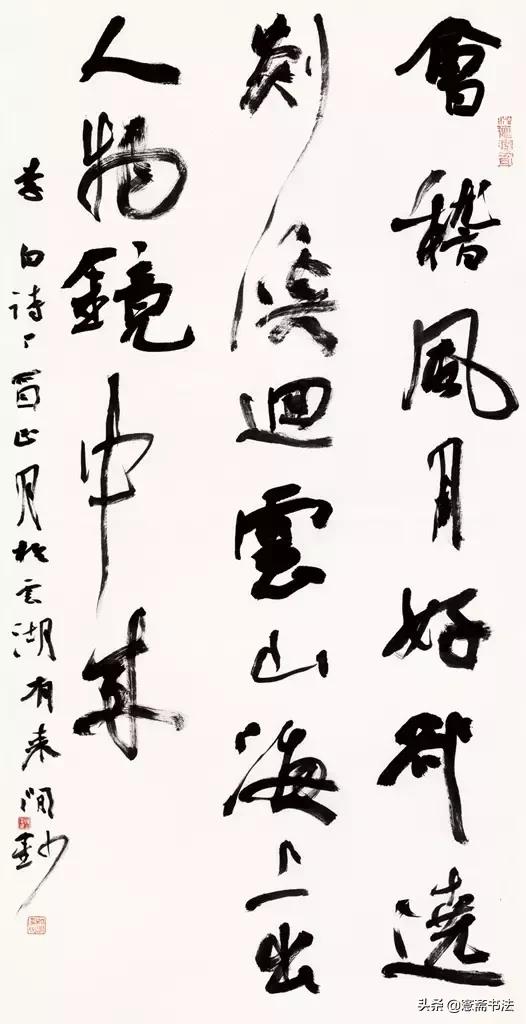 會稽風月好却遶
剡溪迴雲山海上出
人物鏡中来
李白詩丁酉正月於云湖有来閒鈔
头条 @憲斋书法